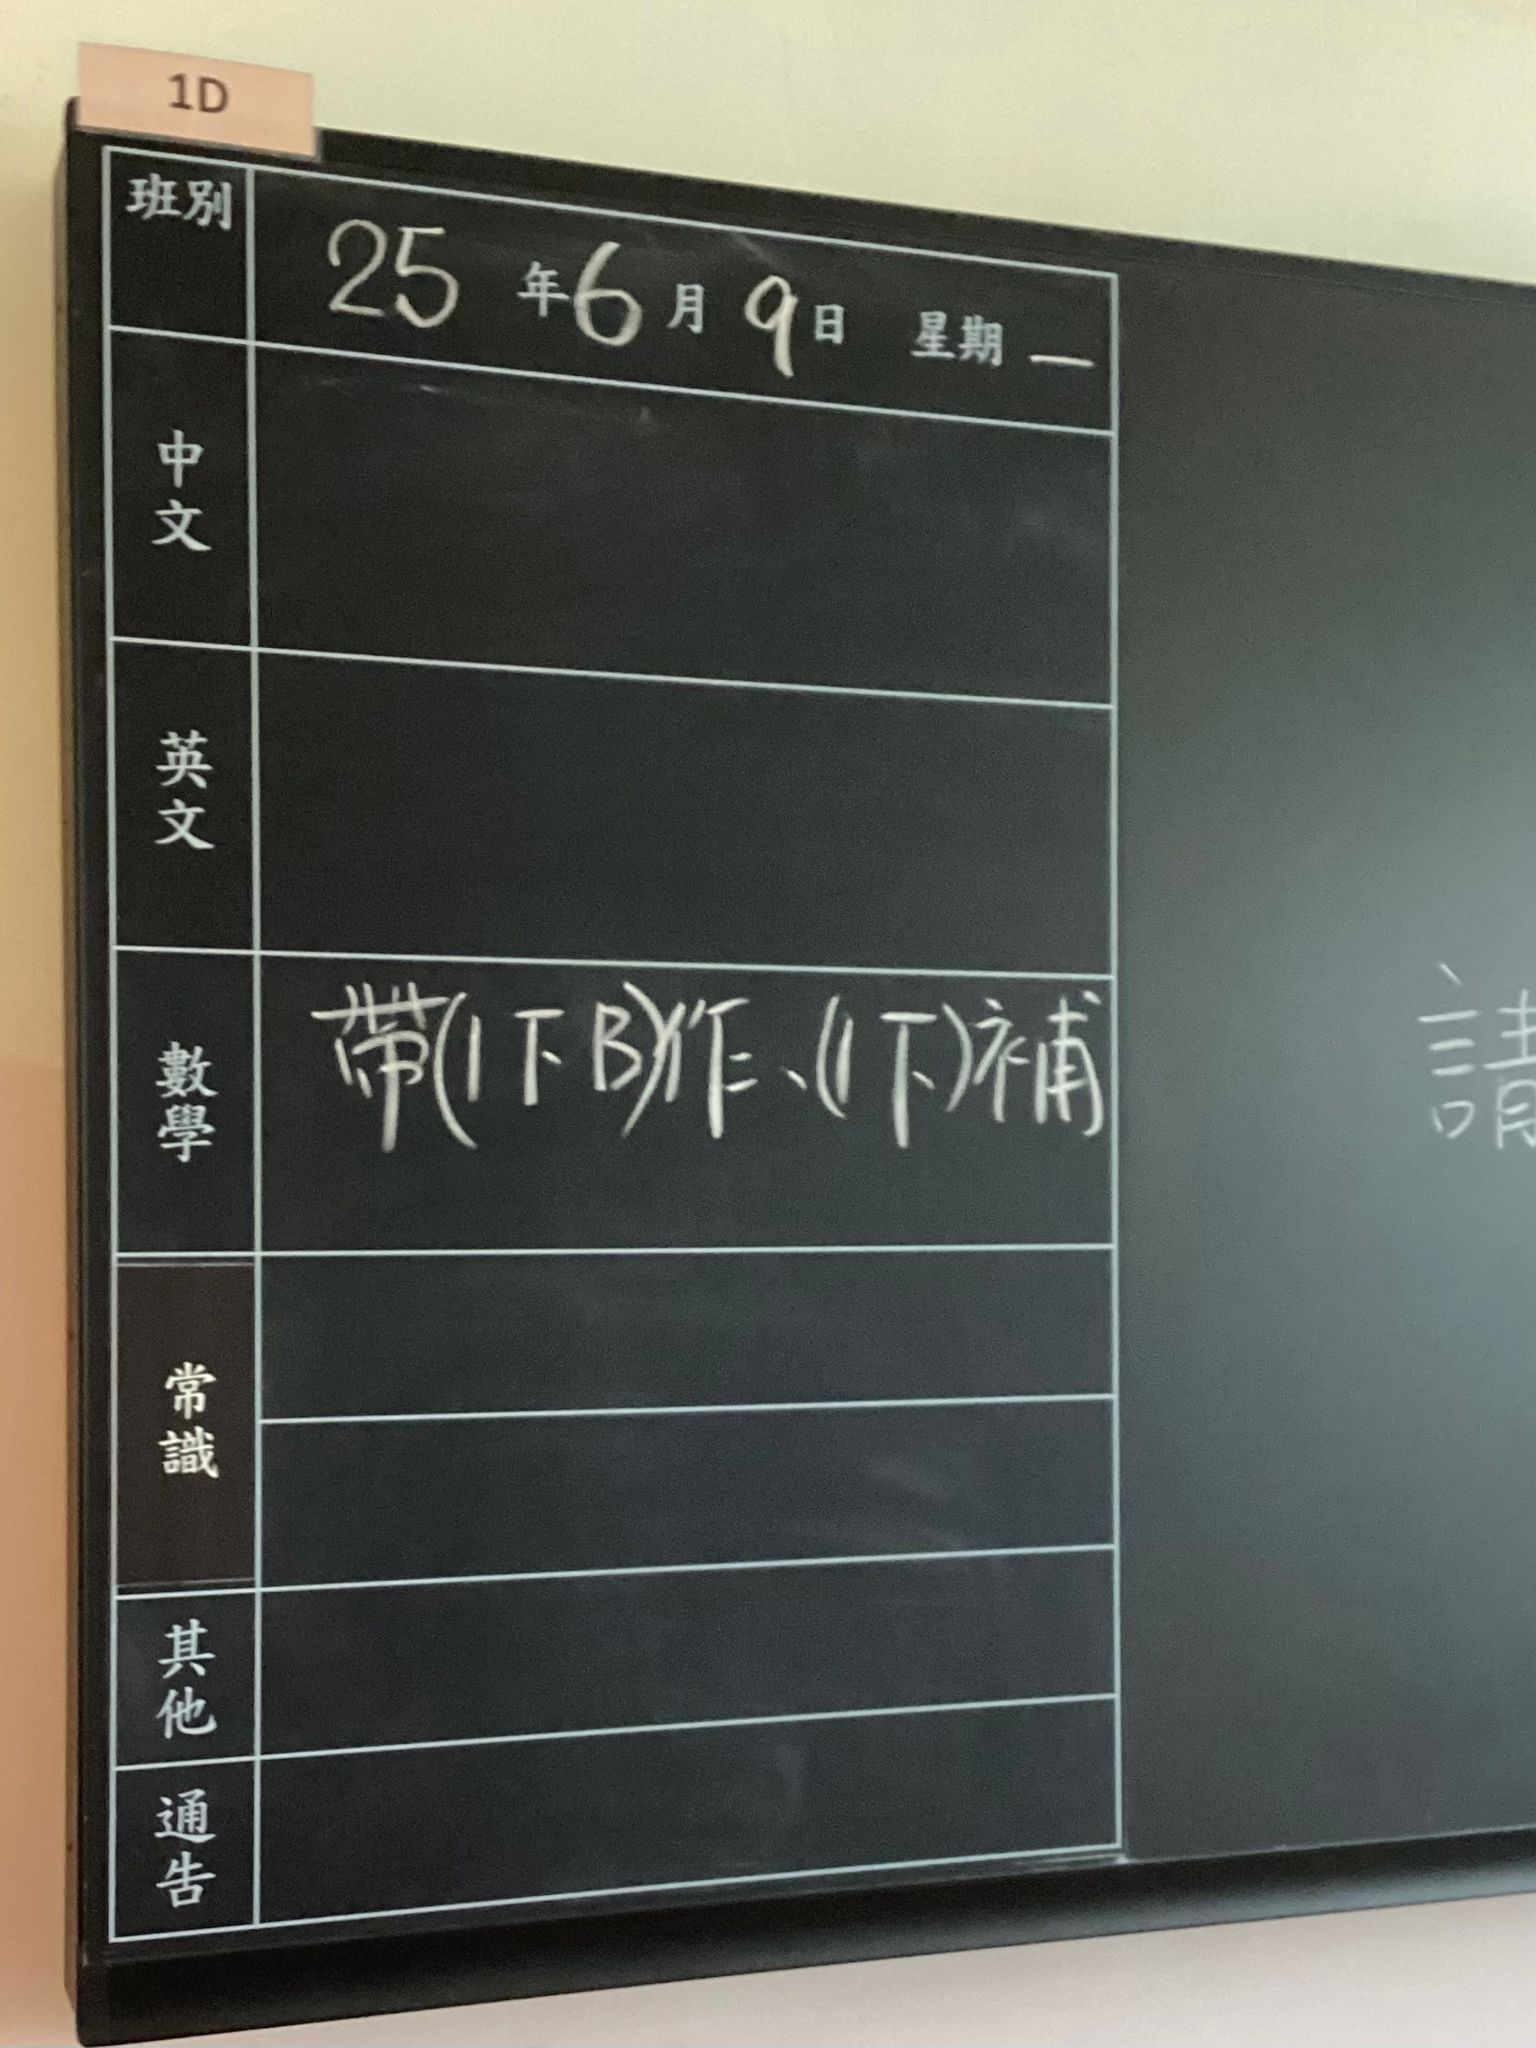 1D
班別
25年6月9日 星期一
中文
英文
數學
帶(1下B)作、(1下)補
請
常識
其他
通告